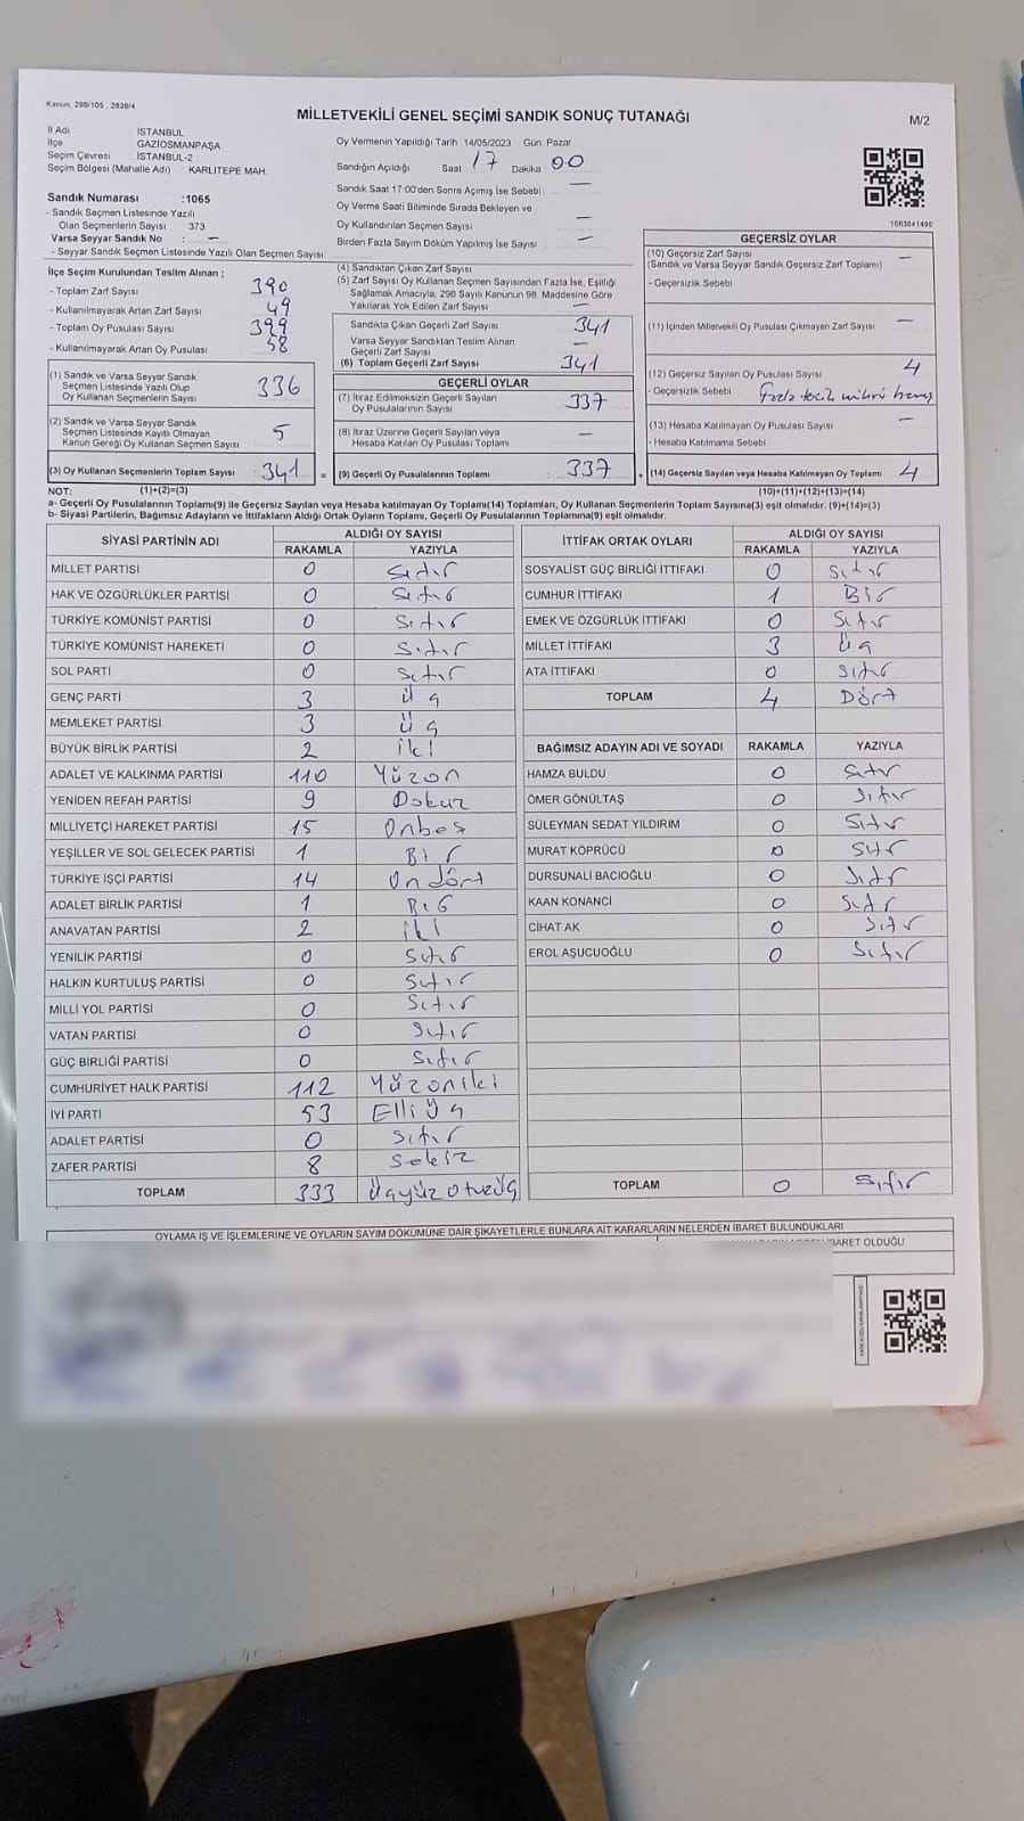 Kanun, 298/105 , 2820/4
MİLLETVEKİLİ GENEL SEÇİMİ SANDIK SONUÇ TUTANAĞI
M/2
İl Adı İSTANBUL
İlçe GAZİOSMANPAŞA
Seçim Çevresi İSTANBUL-2
Seçim Bölgesi (Mahalle Adı) : KARLITEPE MAH.
Oy Vermenin Yapıldığı Tarih 14/05/2023 Gün: Pazar
Sandığın Açıldığı Saat 17 Dakika 00
Sandık Saat 17:00'den Sonra Açımış İse Sebebi —
Oy Verme Saati Bitiminde Sırada Bekleyen ve
Oy Kullandırılan Seçmen Sayısı —
Birden Fazla Sayım Döküm Yapılmış İse Sayısı —
Sandık Numarası :1065
- Sandık Seçmen Listesinde Yazılı
Olan Seçmenlerin Sayısı 373
Varsa Seyyar Sandık No : —
- Seyyar Sandık Seçmen Listesinde Yazılı Olan Seçmen Sayısı:
İlçe Seçim Kurulundan Teslim Alınan ;
- Toplam Zarf Sayısı 390
- Kullanılmayarak Artan Zarf Sayısı 49
- Toplam Oy Pusulası Sayısı 399
- Kullanılmayarak Artan Oy Pusulası 58
(1) Sandık ve Varsa Seyyar Sandık
Seçmen Listesinde Yazılı Olup
Oy Kullanan Seçmenlerin Sayısı 336
(2) Sandık ve Varsa Seyyar Sandık
Seçmen Listesinde Kayıtlı Olmayan
Kanun Gereği Oy Kullanan Seçmen Sayısı 5
(3) Oy Kullanan Seçmenlerin Toplam Sayısı 341 =
(4) Sandıktan Çıkan Zarf Sayısı
(5) Zarf Sayısı Oy Kullanan Seçmen Sayısından Fazla İse, Eşitliği
Sağlamak Amacıyla, 298 Sayılı Kanunun 98. Maddesine Göre
Yakılarak Yok Edilen Zarf Sayısı —
Sandıkta Çıkan Geçerli Zarf Sayısı 341
Varsa Seyyar Sandıktan Teslim Alınan
Geçerli Zarf Sayısı —
(6) Toplam Geçerli Zarf Sayısı 341
GEÇERLİ OYLAR
(7) İtiraz Edilmeksizin Geçerli Sayılan
Oy Pusulalarının Sayısı 337
(8) İtiraz Üzerine Geçerli Sayılan veya
Hesaba Katılan Oy Pusulası Toplamı —
(9) Geçerli Oy Pusulalarının Toplamı 337 +
GEÇERSİZ OYLAR
(10) Geçersiz Zarf Sayısı —
(Sandık ve Varsa Seyyar Sandık Geçersiz Zarf Toplamı)
- Geçersizlik Sebebi
(11) İçinden Milletvekili Oy Pusulası Çıkmayan Zarf Sayısı —
(12) Geçersiz Sayılan Oy Pusulası Sayısı 4
- Geçersizlik Sebebi Fazla tercih mührü
(13) Hesaba Katılmayan Oy Pusulası Sayısı —
- Hesaba Katılmama Sebebi
(14) Geçersiz Sayılan veya Hesaba Katılmayan Oy Toplamı 4
NOT: (1)+(2)=(3) (10)+(11)+(12)+(13)=(14)
a- Geçerli Oy Pusulalarının Toplamı(9) ile Geçersiz Sayılan veya Hesaba katılmayan Oy Toplamı(14) Toplamları, Oy Kullanan Seçmenlerin Toplam Sayısına(3) eşit olmalıdır. (9)+(14)=(3)
b- Siyasi Partilerin, Bağımsız Adayların ve İttifakların Aldığı Ortak Oyların Toplamı, Geçerli Oy Pusulalarının Toplamına(9) eşit olmalıdır.
SİYASİ PARTİNİN ADI ALDIĞI OY SAYISI
RAKAMLA YAZIYLA
MİLLET PARTİSİ 0 Sıfır
HAK VE ÖZGÜRLÜKLER PARTİSİ 0 Sıfır
TÜRKİYE KOMÜNİST PARTİSİ 0 Sıfır
TÜRKİYE KOMÜNİST HAREKETİ 0 Sıfır
SOL PARTİ 0 Sıfır
GENÇ PARTİ 3 Üç
MEMLEKET PARTİSİ 3 Üç
BÜYÜK BİRLİK PARTİSİ 2 İki
ADALET VE KALKINMA PARTİSİ 110 Yüzon
YENİDEN REFAH PARTİSİ 9 Dokuz
MİLLİYETÇİ HAREKET PARTİSİ 15 Onbeş
YEŞİLLER VE SOL GELECEK PARTİSİ 1 Bir
TÜRKİYE İŞÇİ PARTİSİ 14 On dört
ADALET BİRLİK PARTİSİ 1 Bir
ANAVATAN PARTİSİ 2 İki
YENİLİK PARTİSİ 0 Sıfır
HALKIN KURTULUŞ PARTİSİ 0 Sıfır
MİLLİ YOL PARTİSİ 0 Sıfır
VATAN PARTİSİ 0 Sıfır
GÜÇ BİRLİĞİ PARTİSİ 0 Sıfır
CUMHURİYET HALK PARTİSİ 112 Yüzoniki
İYİ PARTİ 53 Elli üç
ADALET PARTİSİ 0 Sıfır
ZAFER PARTİSİ 8 Sekiz
TOPLAM 333 Üçyüz otuzüç
İTTİFAK ORTAK OYLARI ALDIĞI OY SAYISI
RAKAMLA YAZIYLA
SOSYALİST GÜÇ BİRLİĞİ İTTİFAKI 0 Sıfır
CUMHUR İTTİFAKI 1 Bir
EMEK VE ÖZGÜRLÜK İTTİFAKI 0 Sıfır
MİLLET İTTİFAKI 3 Üç
ATA İTTİFAKI 0 Sıfır
TOPLAM 4 Dört
BAĞIMSIZ ADAYIN ADI VE SOYADI RAKAMLA YAZIYLA
HAMZA BULDU 0 Sıfır
ÖMER GÖNÜLTAŞ 0 Sıfır
SÜLEYMAN SEDAT YILDIRIM 0 Sıfır
MURAT KÖPRÜCÜ 0 Sıfır
DURSUNALİ BACIOĞLU 0 Sıfır
KAAN KONANCİ 0 Sıfır
CİHAT AK 0 Sıfır
EROL AŞUCUOĞLU 0 Sıfır
TOPLAM 0 Sıfır
OYLAMA İŞ VE İŞLEMLERİNE VE OYLARIN SAYIM DÖKÜMÜNE DAİR ŞİKAYETLERLE BUNLARA AİT KARARLARIN NELERDEN İBARET BULUNDUKLARI
İBARET OLDUĞU